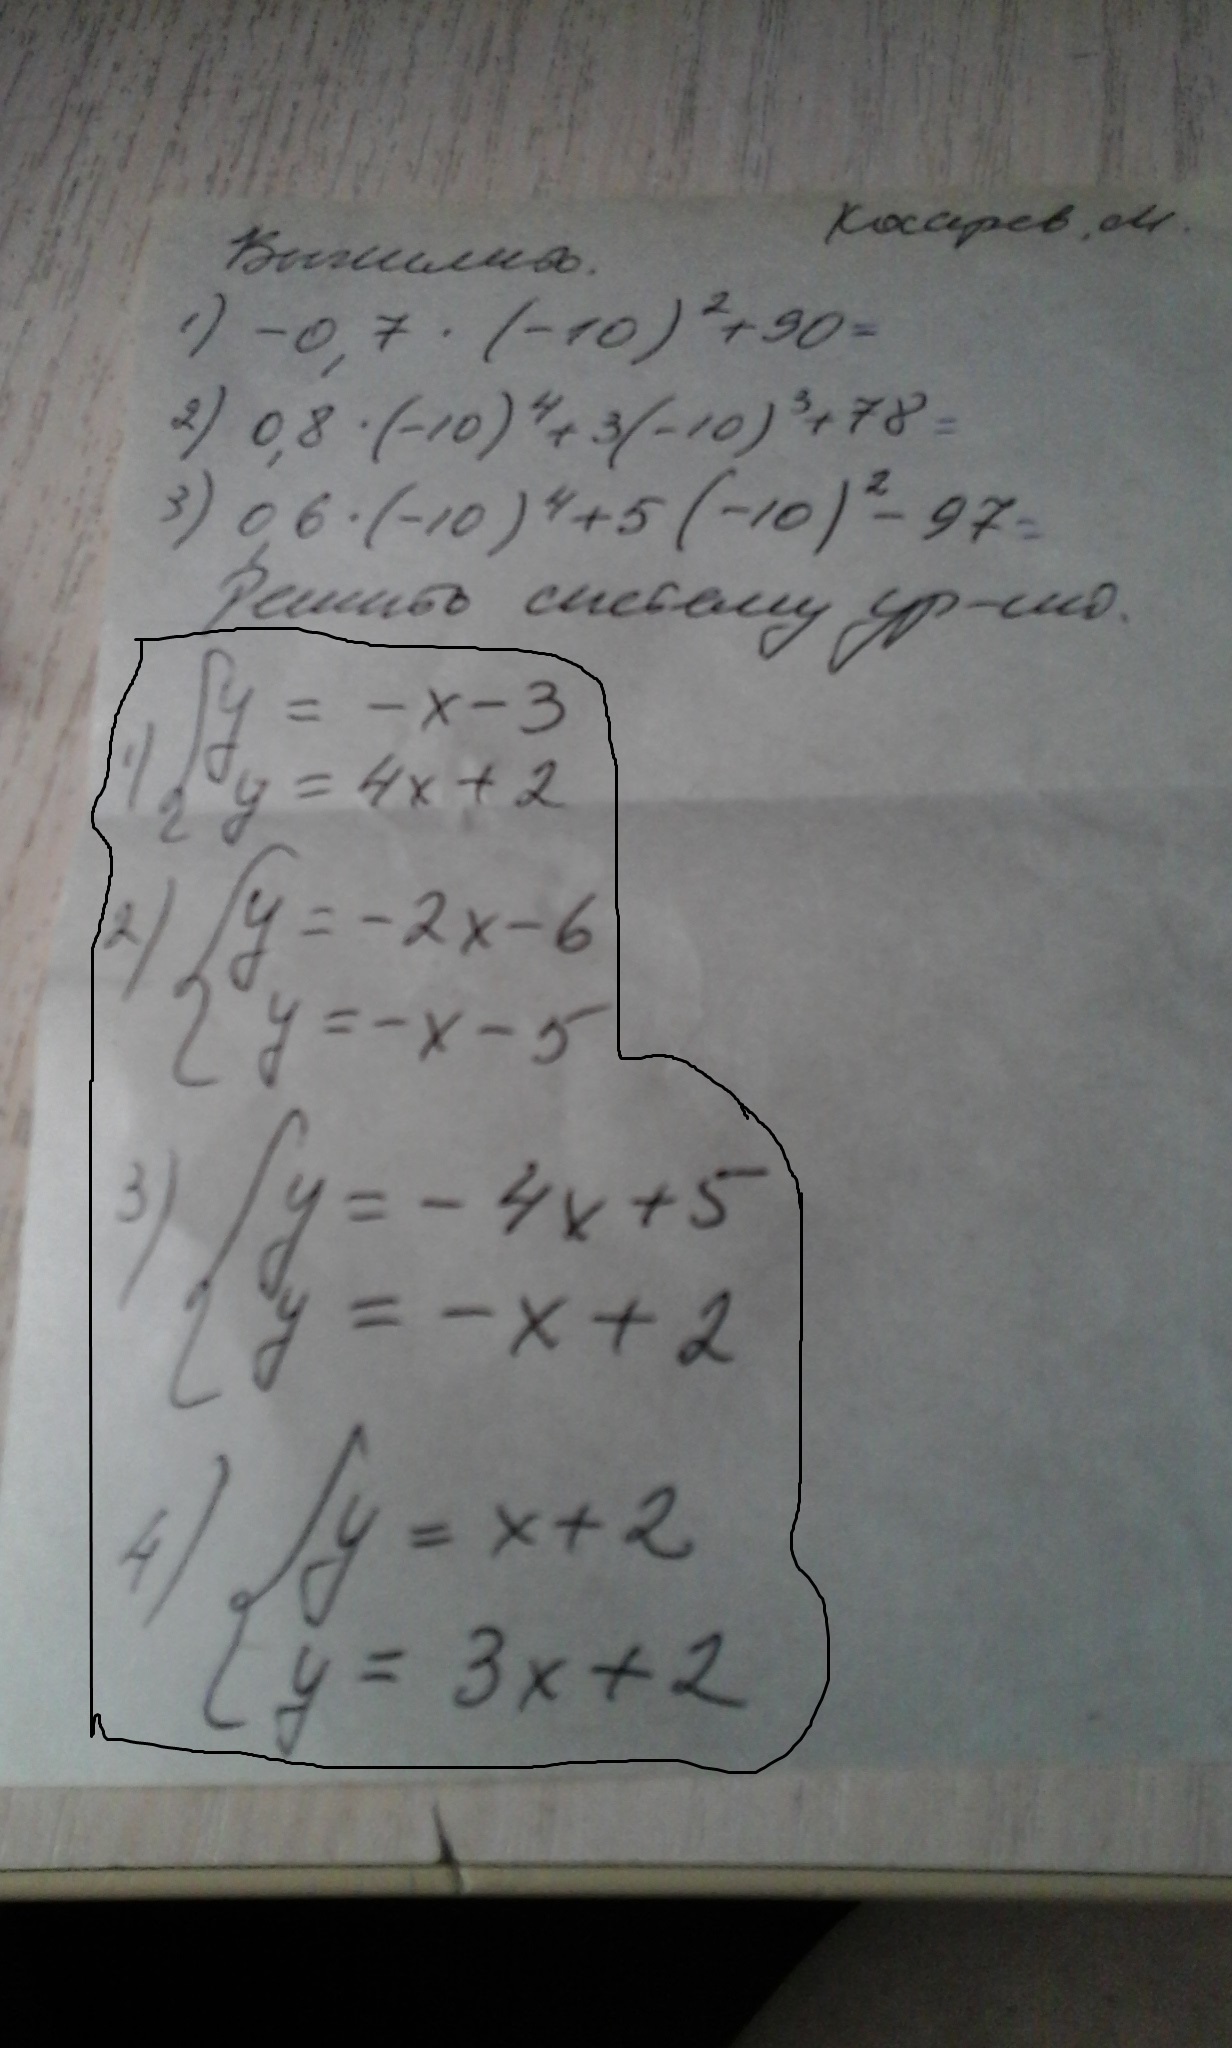 Косарев. М.
Вычислить.
1) -0,7 · (-10)² + 90 =
2) 0,8 · (-10)⁴ + 3(-10)³ + 78 =
3) 0,6 · (-10)⁴ + 5(-10)² - 97 =
Решить систему ур-ий.
1) { y = -x - 3
y = 4x + 2
2) { y = -2x - 6
y = -x - 5
3) { y = -4x + 5
y = -x + 2
4) { y = x + 2
y = 3x + 2